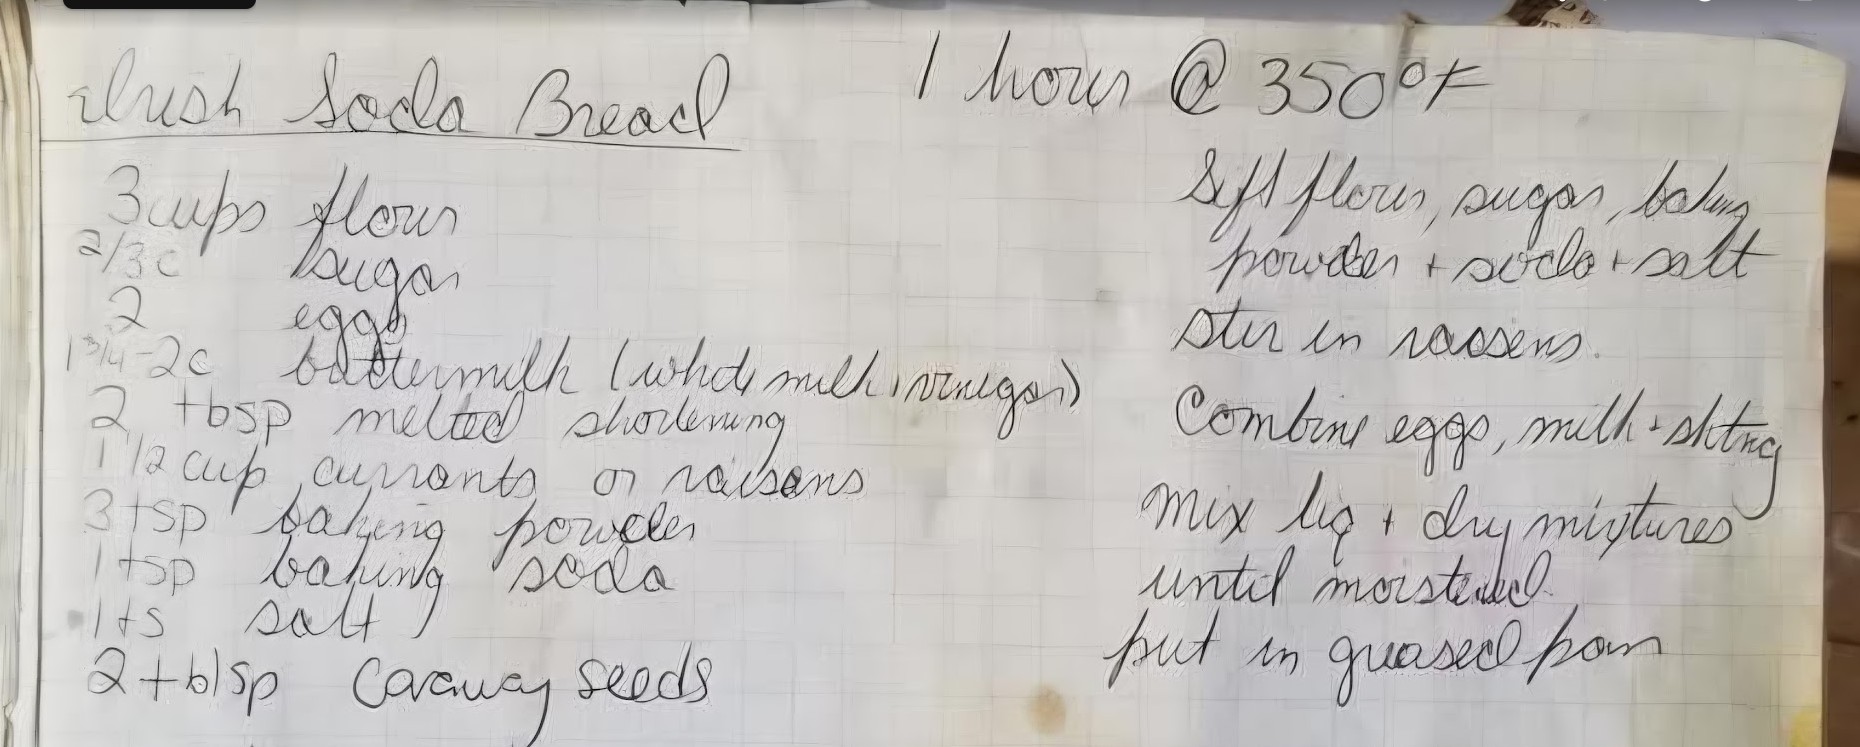 Irish Soda Bread
1 hour @ 350°F
3 cups flour
2/3 c sugar
2 eggs
1 3/4 - 2c buttermilk (whole milk + vinegar)
2 tbsp melted shortening
1 1/2 cup currants or raisans
3 tsp baking powder
1 tsp baking soda
1 ts salt
2 tblsp Caraway seeds
Sift flour, sugar, baking
powder + soda + salt
stir in raisens.
Combine eggs, milk + shtng
Mix liq + dry mixtures
until moistened.
put in greased pan